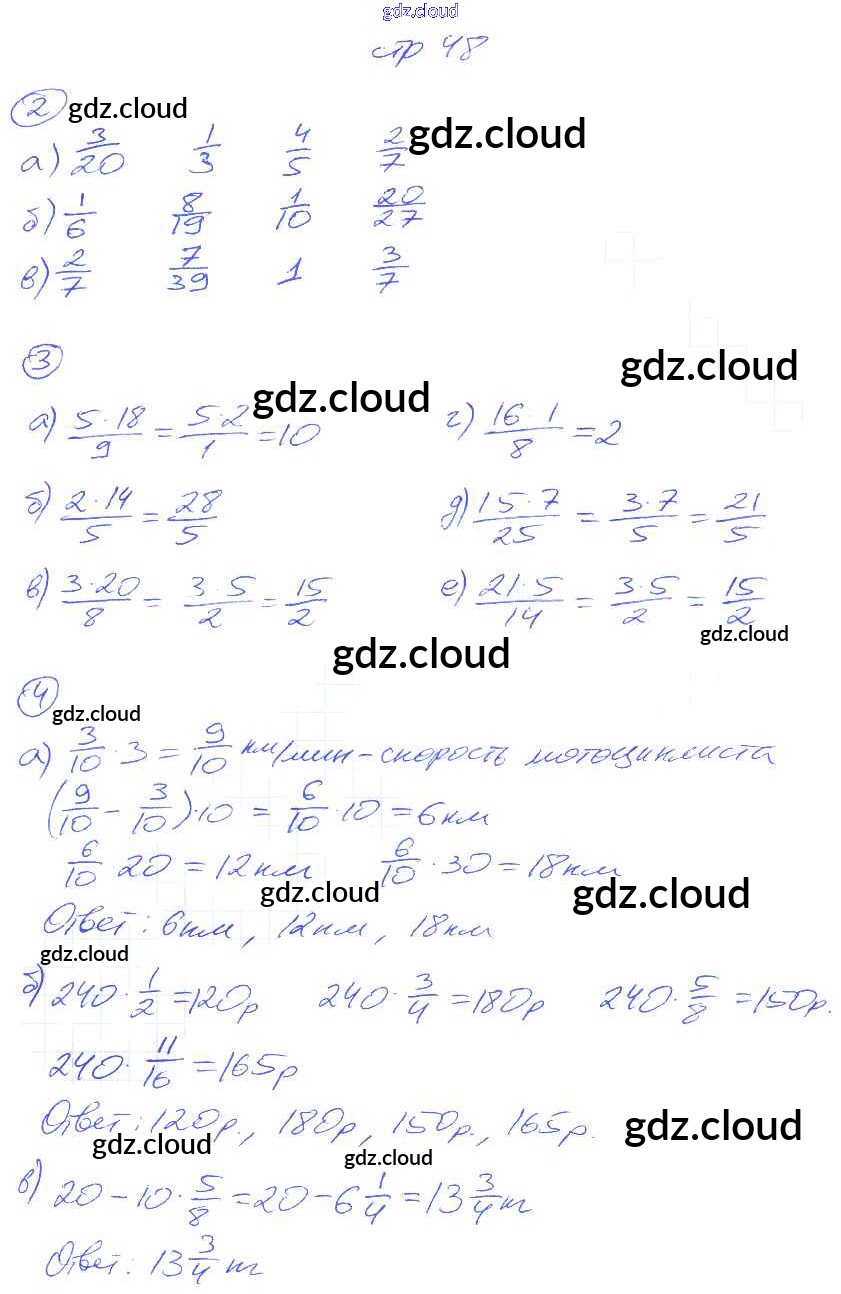 gdz.cloud
стр 48
2 gdz.cloud
а) 3/20 1/3 4/5 2/7 gdz.cloud
б) 1/6 8/19 1/10 20/27
в) 2/7 7/39 1 3/7
3 gdz.cloud
gdz.cloud
а) 5·18/9 = 5·2/1 = 10 г) 16·1/8 = 2
б) 2·14/5 = 28/5 д) 15·7/25 = 3·7/5 = 21/5
в) 3·20/8 = 3·5/2 = 15/2 е) 21·5/14 = 3·5/2 = 15/2
gdz.cloud
gdz.cloud
4 gdz.cloud
а) 3/10 · 3 = 9/10 км/мин - скорость мотоциклиста
(9/10 - 3/10)·10 = 6/10 · 10 = 6км
6/10 20 = 12км 6/10 · 30 = 18км
gdz.cloud gdz.cloud
Ответ: 6км, 12км, 18км
gdz.cloud
б) 240 · 1/2 = 120р 240 · 3/4 = 180р 240 · 5/8 = 150р.
240 · 11/16 = 165р
Ответ: 120р., 180р, 150р., 165р. gdz.cloud
gdz.cloud gdz.cloud
в) 20 - 10 · 5/8 = 20 - 6 1/4 = 13 3/4 т
Ответ: 13 3/4 т